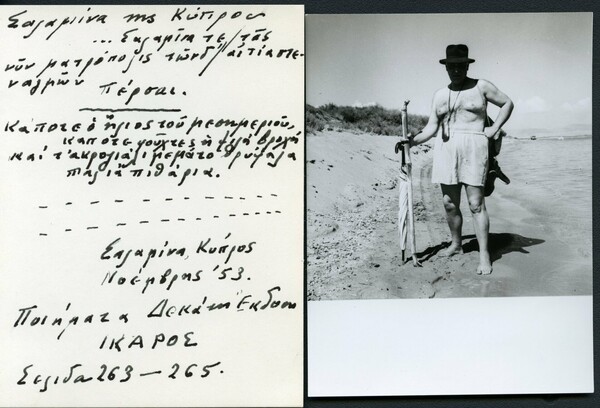 Σαλαμίνα της Κύπρος
... Σαλαμῖνα τε / τᾶς
νῦν ματρόπολις τῶνδ' / αἰτία στε-
ναγμῶν
Πέρσαι.
Κάποτε ὁ ἥλιος τοῦ μεσημεριοῦ,
κάποτε φούχτες ἡ ψιλή βροχή
καί τ' ἀκρογιάλι γεμάτο θρύψαλα
παλιά πιθάρια.
Σαλαμίνα, Κύπρος
Νοέμβρης '53.
Ποιήματα Δεκάτη Έκδοση
ΙΚΑΡΟΣ
Σελίδα 263 – 265.